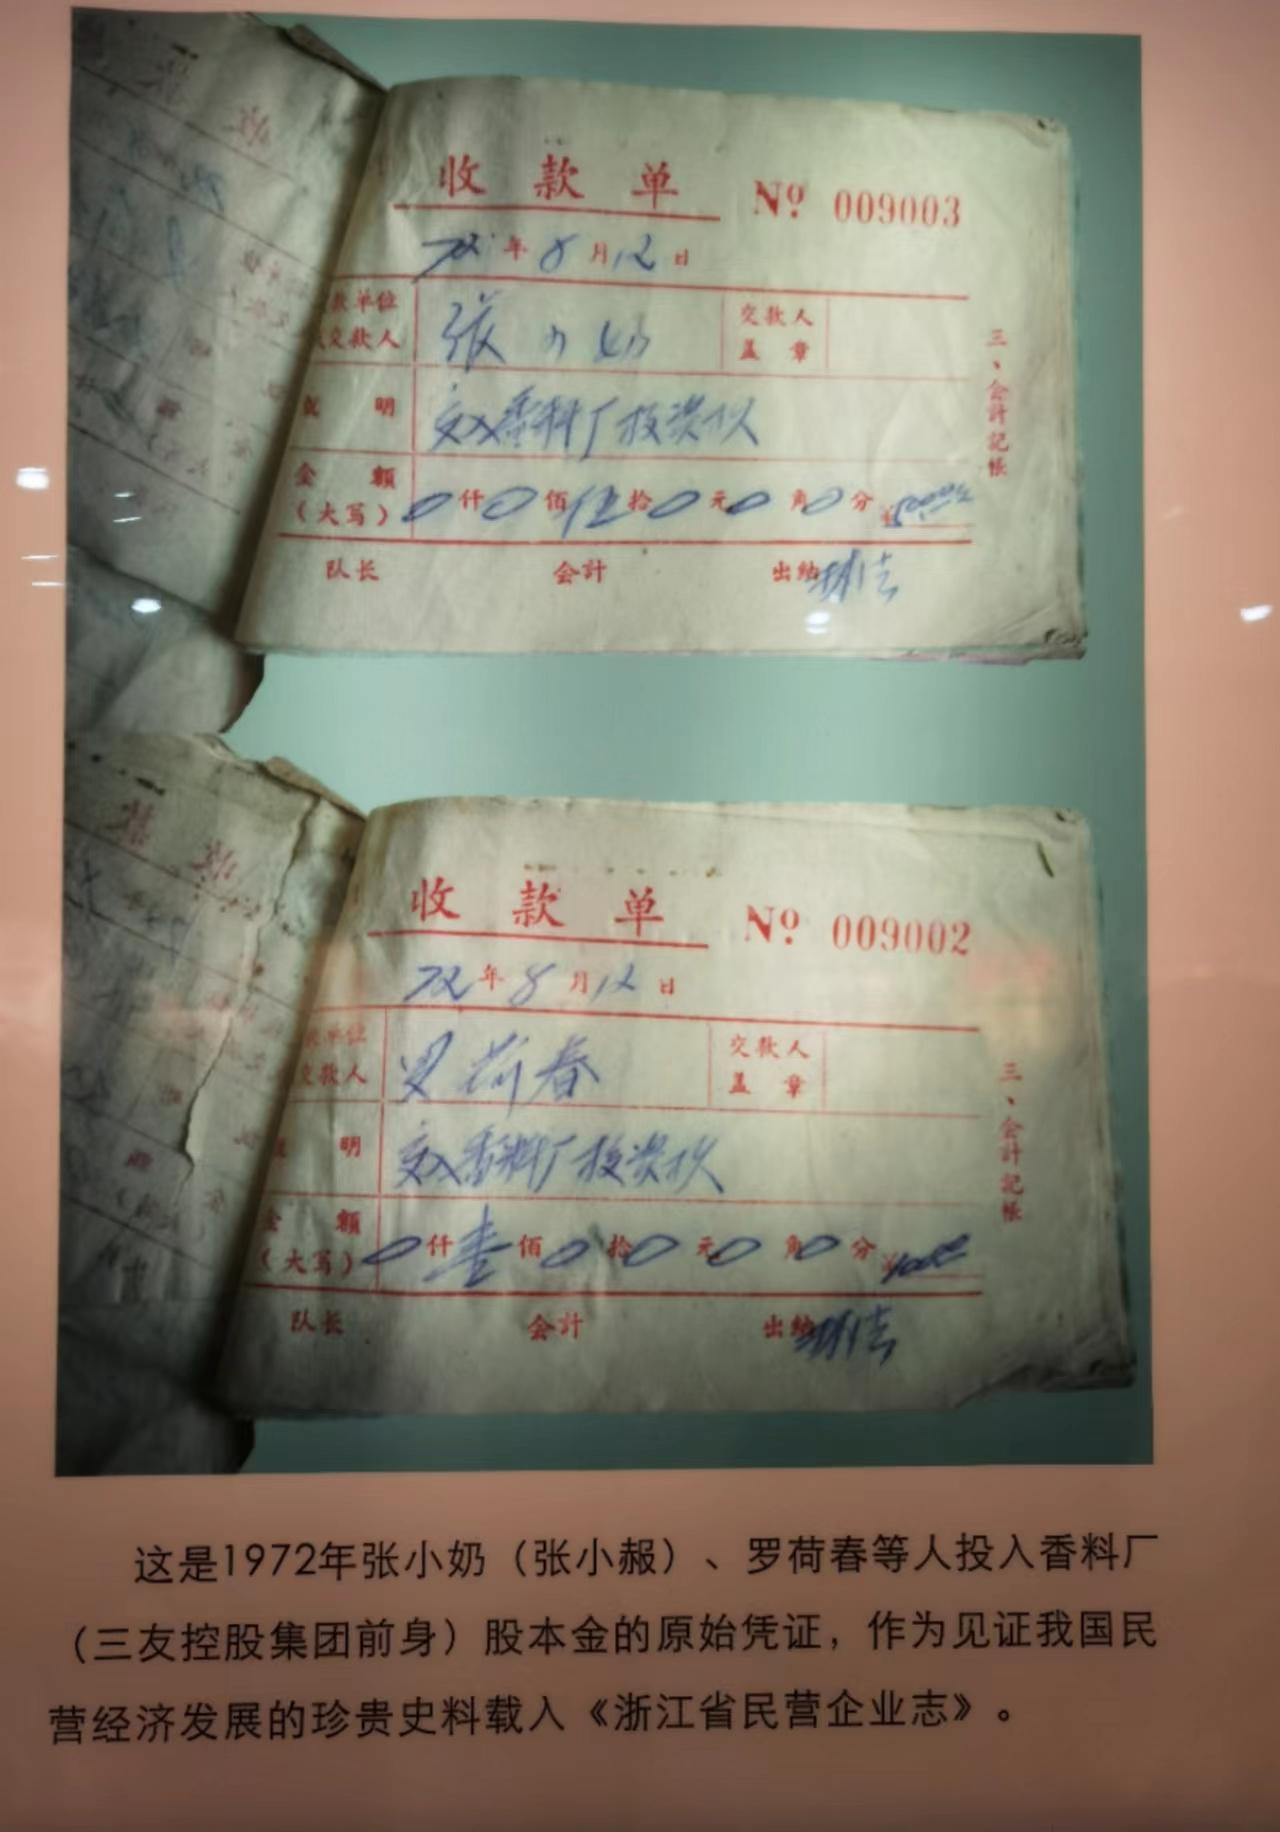 收款单 Nº 009003
72年8月12日
款单位
交款人
张小奶
交款人
盖章
说明
交入香料厂投资款
金额
(大写)
0仟0佰伍拾0元0角0分
队长 会計 出纳
三、会計記帳
收款单 Nº 009002
72年8月12日
款单位
交款人
罗荷春
交款人
盖章
明
交入香料厂投资款
金额
(大写)
0仟壹佰0拾0元0角0分
队长 会計 出纳
三、会計記帳
这是1972年张小奶（张小赧）、罗荷春等人投入香料厂
（三友控股集团前身）股本金的原始凭证，作为见证我国民
营经济发展的珍贵史料载入《浙江省民营企业志》。